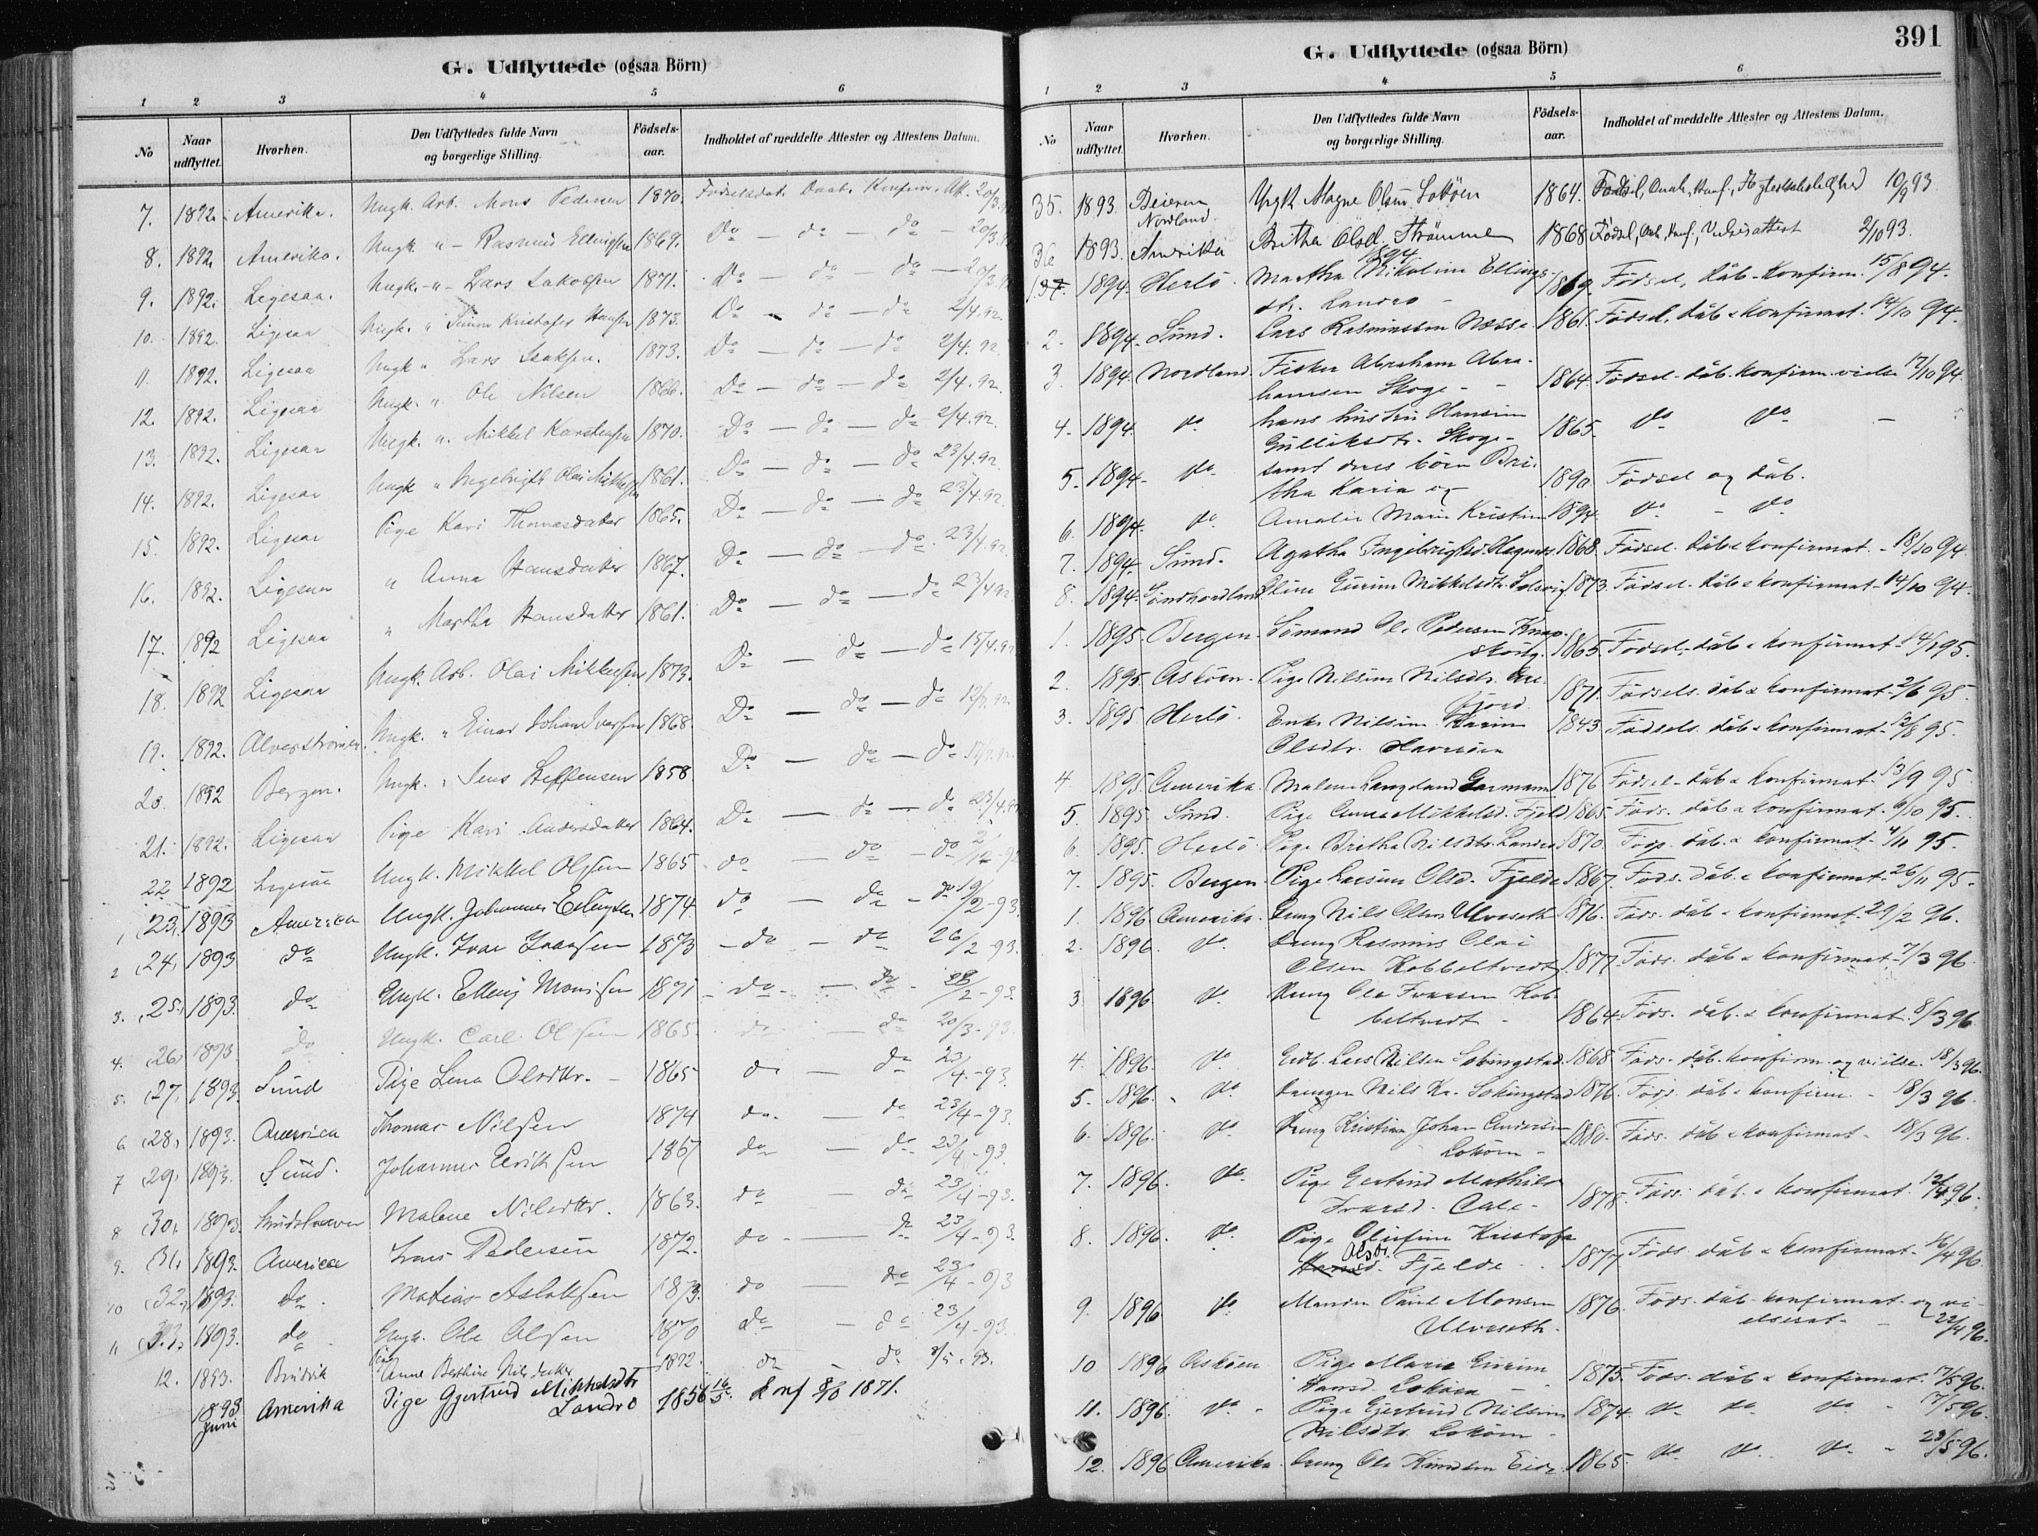 G. Udflyttede (ogsaa Börn)
1 2 3 4 5 6
No Naar udflyttet. Hvorhen. Den Udflyttedes fulde Navn og borgerlige Stilling. Födsels-aar. Indholdet af meddelte Attester og Attestens Datum.
7. 1892. Amerika. Ungk. Arb. Mons Pedersen 1870. Fødselsdat. Daab. Konfirm. Att. 20/3
8. 1892. Amerika. Ungk. " Rasmus Ellingsen 1869. Do — do — do — 20/3
9. 1892. Ligesaa. Ungk. " Lars Jakobsen 1871. Do — do — do —
10. 1892. Ligesaa Ungk. " Simon Kristofer Hansen 1873. Do — do — do 2/4.92.
11. 1892. Ligesaa Ungk. " Lars Isaksen. 1873. Do — do — do 2/4.92.
12. 1892. Ligesaa Ungk. " Ole Nilsen 1866. Do — do — do 2/4.92.
13. 1892. Ligesaa Ungk. " Mikkel Karstensen 1870. Do — do — do 2/4.92.
14. 1892. Ligesaa Ungk. " Ingebrigt Olai Mikkelsen 1861. Do — do — do 23/4.92.
15. 1892. Ligesaa Pige Kari Thomasdatter 1865. Do — do — do 23/4.92.
16. 1892. Ligesaa " Anna Hansdatter 1867. Do — do — do. 23/4.92.
17. 1892 Ligesaa " Martha Hansdatter 1861. Do — do — do 23/4.92
18. 1892 Ligesaa Ungk. Arb. Olai Mikkelsen 1873. Do — do — do 15/4.92
19. 1892. Alverstrømmen. Ungk. " Einar Johan Iversen 1868. Do — do — do
20. 1892 Bergen. Ungk. " Jens Steffensen 1858 Do — do — do
21. 1892. Ligesaa Pige Kari Andersdatter 1864. Do — do — do 23/4.92
22 1892 Ligesaa Ungk. Mikkel Olsen 1865 do — do — do
1, (23.) 1893 America Ungk. Johannes Ellingsen 1874 do — do — do 19/2-93.
2 (24.) 1893 do Ungk. Ivar Ivarsen 1873 — do — do 26/2-93.
3. (25.) 1893. do Ungk. Elling Monsen 1871 — do — do 28/2-93.
4. (26.) 1893 do Ungk. Carl Olsen 1865 do — do 20/3-93.
5. (27.) 1893. Sund Pige Lena Olsdtr. 1865 do — do 23/4-93.
6 (28.) 1893. America Thomas Nilsen 1874 do — do 23/4-93.
7 (29.) 1893. Sund. Johannes Eriksen 1867 do — do 23/4-93.
8 (30.) 1893. Malene Nilsdtr. 1863. do — do 23/4-93.
9. (31.) 1893. America Lars Pedersen 1872. do — do 23/4-93
10 (32.) 1893. do Matias Aslaksen 1873. do — do 23/4-93
11 (33.) 1893. do Ungk. Ole Olsen 1870 do — do 23/4-93.
12. 1893. Bruvik Pige Anne Berthine Nilsdatter 1872. do — do 8/5.93.
1893 Juni Amerika Pige Gjertrud Mikkelsdtr 1856 16/5. Konf 8/10 1871.
Landro
391
G. Udflyttede (ogsaa Börn)
1 2 3 4 5 6
No Naar udflyttet. Hvorhen. Den Udflyttedes fulde Navn og borgerlige Stilling. Födsels-aar. Indholdet af meddelte Attester og Attestens Datum.
35. 1893. Beieren Nordland. Ungk Mogne Olsen Lokøen 1864. Fødsel, Daab, Konf., 10/9 93
36 1893. Amerika Britha Olsd. Strømme 1868 Fødsel, Daab, Konf., Vielsesattest 2/10 93.
1894
1.37. 1894. Herlö. Martha Nikoline Ellings-
dtr. Landro — 1869. Födsel, dåb. Konfirm. 15/8 94.
2. 1894. Sund. Lars Rasmussen Nesse 1861. Födsel. dåb & konfirmat. 14/10 94.
3 1894 Nordland. Fisker Abraham Abra-
hamsen Skoge — 1864. Födsel. dåb. konfirm. vielse 17/10 94.
4. 1894 do hans hustru Hansine
Gulliksdtr. Skoge — 1865. do do —
5. 1894. do samt deres börn Bri-
tha Karia og 1890 Födsel og dåb.
6. 1894. do Amalie Marie Kristine 1894 do — do
7. 1894. Sund. Agatha Ingebrigtsd. Hagenes 1868. Födsel. dåb & konfirmat. — 18/10 94
8. 1894. Söndhordland Oline Gurine Mikkelsdtr. Solsvig 1873. Födsel. dåb & konfirmat. 14/10 94.
1. 1895. Bergen. Sömand Ole Pedersen Knap-
skog. 1865. Födsel. dåb & konfirmat. 95.
2. 1895. Askøen. Pige Nilsine Nilsdtr. Eri-
fjord. 1871. Födsels. dåb & konfirmat. 2/6 95.
3. 1895 Herlö. Enke Nilsine Karine
Olsdtr. Havroen 1843. Födsels. dåb & konfirmat. 95.
4 1895. Amerika. Malene Langeland Garmann 1876 Födsel. dåb & konfirmat. 13/9 95
5. 1895. Sund. Pige Anna Mikkelsd. Fjeld 1865. Föds. dåb & konfirmat. 6/10 95.
6. 1895. Herlö. Pige Britha Nilsdtr. Landro 1870. Föds. dåb. & konfirmat. 4/11 95.
7. 1895. Bergen. Pige Larsine Olsd. Fjelde 1867. Föds. dåb. & konfirmat. 26/11 95.
1. 1896 Amerika. Dreng Nils Olsen Ulveseth 1876. Föds. dåb & konfirmat. 29/2 96.
2. 1896. do. Dreng Rasmus Olai
Olsen Kobbeltvedt 1877. Föds. dåb & konfirmat. 7/3 96.
3 1896 do. Dreng Ole Ivarsen Kob-
beltvedt — 1864 Föds. dåb. & konfirmat. 8/3 96.
4. 1896. do. Gidb. Lars Nilsen Sekingstad 1868 Föds. dåb. konfirm. og vielse. 18/3 96.
5. 1896. do Drengen Nils Kr. Sekingstad 1876. Föds. dåb & konfirm — 18/3 96.
6. 1896. do. Dreng Kristian Johan Andersen
Lokøen — 1880. Föds. dåb & konfirmat — 18/3 96.
7. 1896. do. Pige Gertrud Mathilde
Ivarsd. Cale — 1878. Föds. dåb. & konfirmat. 12/4 96.
8. 1896. do. Pige Olufine Kristofa
Olsdr. Fjelde 1877 Föds. dåb & konfirmat. 16/4 96
9. 1896 do Manden Paul Monsen
Ulveseth. 1876. Föds. dåb. konfirmat. og vi-
elsesat — 22/4 96.
10 1896 Askøen Pige Marie Gurine
Hansd. Lokøen — 1875. Föds. dåb & konfirmat. 17/5 96.
11. 1896. do. Pige Gjertrud Nilsine
Nilsdtr. Lokøen — 1874. do do do — 17/5 96.
12. 1896 Amerika. Dreng Ole Knudsen Eide 1865 do do do — 23/5 96.